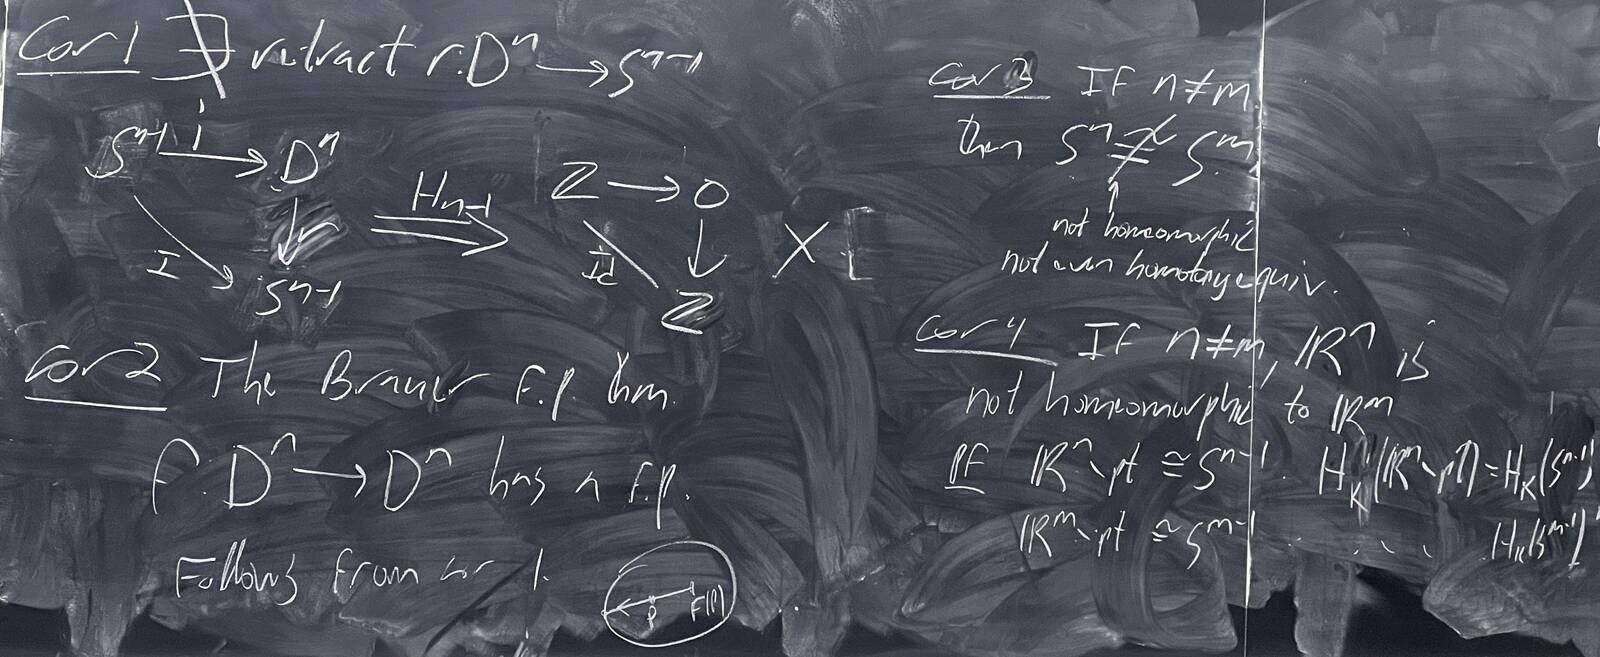 Cor 1 ∄ retract r: Dⁿ → Sⁿ⁻¹
Sⁿ⁻¹ i → Dⁿ
I r
Sⁿ⁻¹
Hₙ₋₁ ⇒
ℤ → 0
Id ↓
ℤ
X
Cor 2 The Brouwer F.p. thm.
f: Dⁿ → Dⁿ has a f.p.
Follows from cor 1.
p f(p)
Cor 3 If n ≠ m
then Sⁿ ≇ Sᵐ.
↑
not homeomorphic
not even homotopy equiv.
Cor 4 If n ≠ m, ℝⁿ is
not homeomorphic to ℝᵐ
Pf ℝⁿ∖pt ≅ Sⁿ⁻¹. Hₖ(ℝⁿ∖pt) = Hₖ(Sⁿ⁻¹)
ℝᵐ∖pt ≅ Sᵐ⁻¹ . . . . Hₖ(Sᵐ⁻¹)